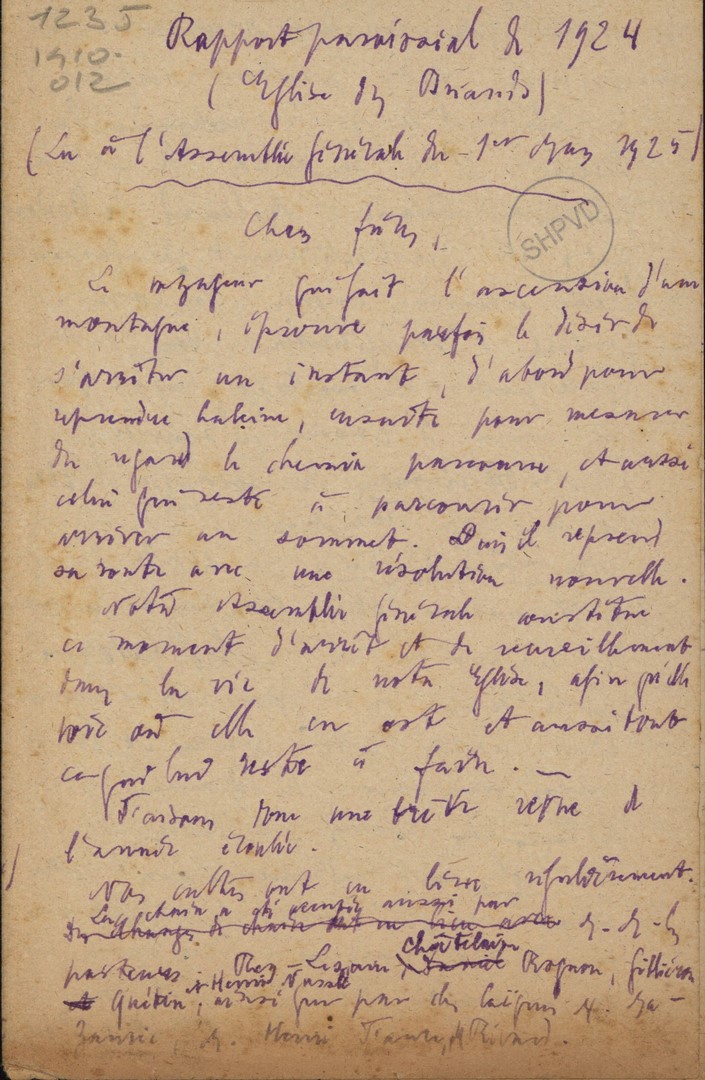 1235
1910-
012
Rapport paroissial de 1924
(Eglise des Briands)
(Lu à l'Assemblée Générale du 1er Mars 1925)
SHPVD
Chers frères,
Le voyageur qui fait l'ascension d'une
montagne, éprouve parfois le désir de
s'arrêter un instant, d'abord pour
reprendre haleine, ensuite pour mesurer
du regard le chemin parcouru, et aussi
celui qui reste à parcourir pour
arriver au sommet. Puis il reprend
sa route avec une résolution nouvelle.
Notre Assemblée Générale constitue
ce moment d'arrêt et de recueillement
dans la vie de notre Eglise, afin qu'elle
voie où elle en est et aussi tout
ce qui lui reste à faire. —
Faisons donc une brève revue de
l'année écoulée.
Nos cultes ont eu lieu régulièrement.
La chaire a été occupée aussi par
M. M. les
pasteurs Châtelain, Rognon, Gillièron
Quétin, et Henri Nussle, ainsi que par des laïques M.
M. Henri Faure, M. Rivard.